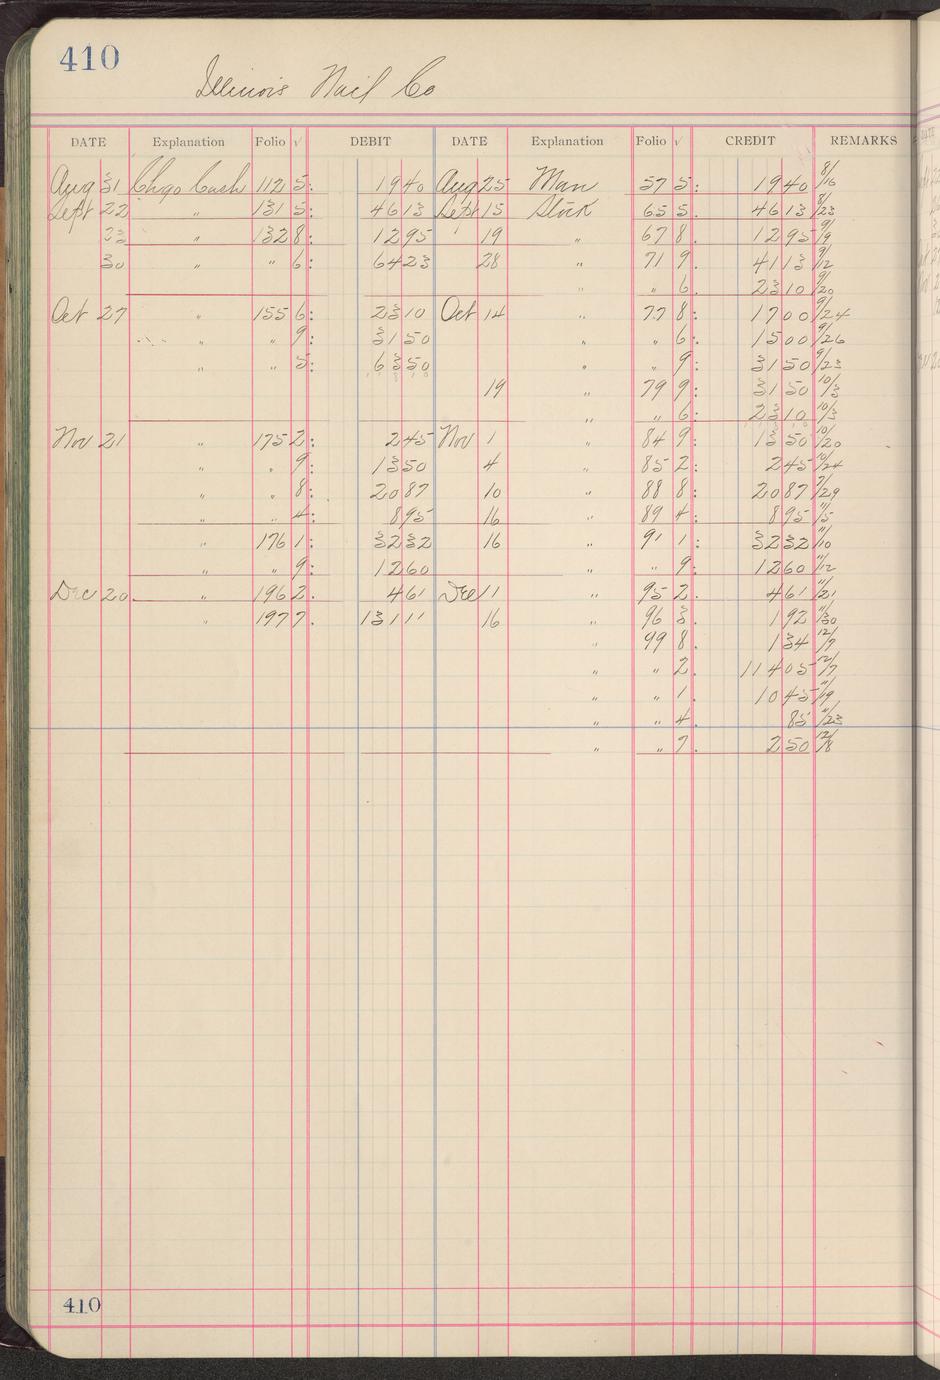 410
Illinois Nail Co
DATE Explanation Folio √ DEBIT DATE Explanation Folio √ CREDIT REMARKS
Aug 31 Chgo Cash 112 5: 19 40 Aug 25 Man 57 5: 19 40 8/16
Sept 22 " 131 5: 46 13 Sept 15 Stock 65 5. 46 13 8/23
23 " 132 8: 12 95 19 " 67 8. 12 95 9/9
30 " " 6: 64 23 28 " 71 9. 41 13 9/12
" " 6. 23 10 9/20
Oct 27 " 155 6: 23 10 Oct 14 " 77 8. 17 00 9/24
" " 9: 31 50 " " 6. 15 00 9/26
" " 5: 63 50 " " 9. 31 50 9/23
19 " 79 9. 31 50 10/3
" " 6: 23 10 10/3
Nov 21 " 175 2: 2 45 Nov 1 " 84 9: 13 50 10/20
" " 9: 13 50 4 " 85 2: 2 45 10/24
" " 8: 20 87 10 " 88 8: 20 87 /29
" " 4: 8 95 16 " 89 4: 8 95 11/5
" 176 1: 32 32 16 " 91 1: 32 32 11/10
" " 9: 12 60 " " 9: 12 60 11/12
Dec 20 " 196 2. 4 61 Dec 11 " 95 2. 4 61 11/21
" 197 7. 131 11 16 " 96 3. 1 92 11/30
" 99 8. 1 34 12/7
" " 2. 114 05 12/7
" " 1. 10 45 11/19
" " 4. 85 11/23
" " 7. 2 50 12/8
410